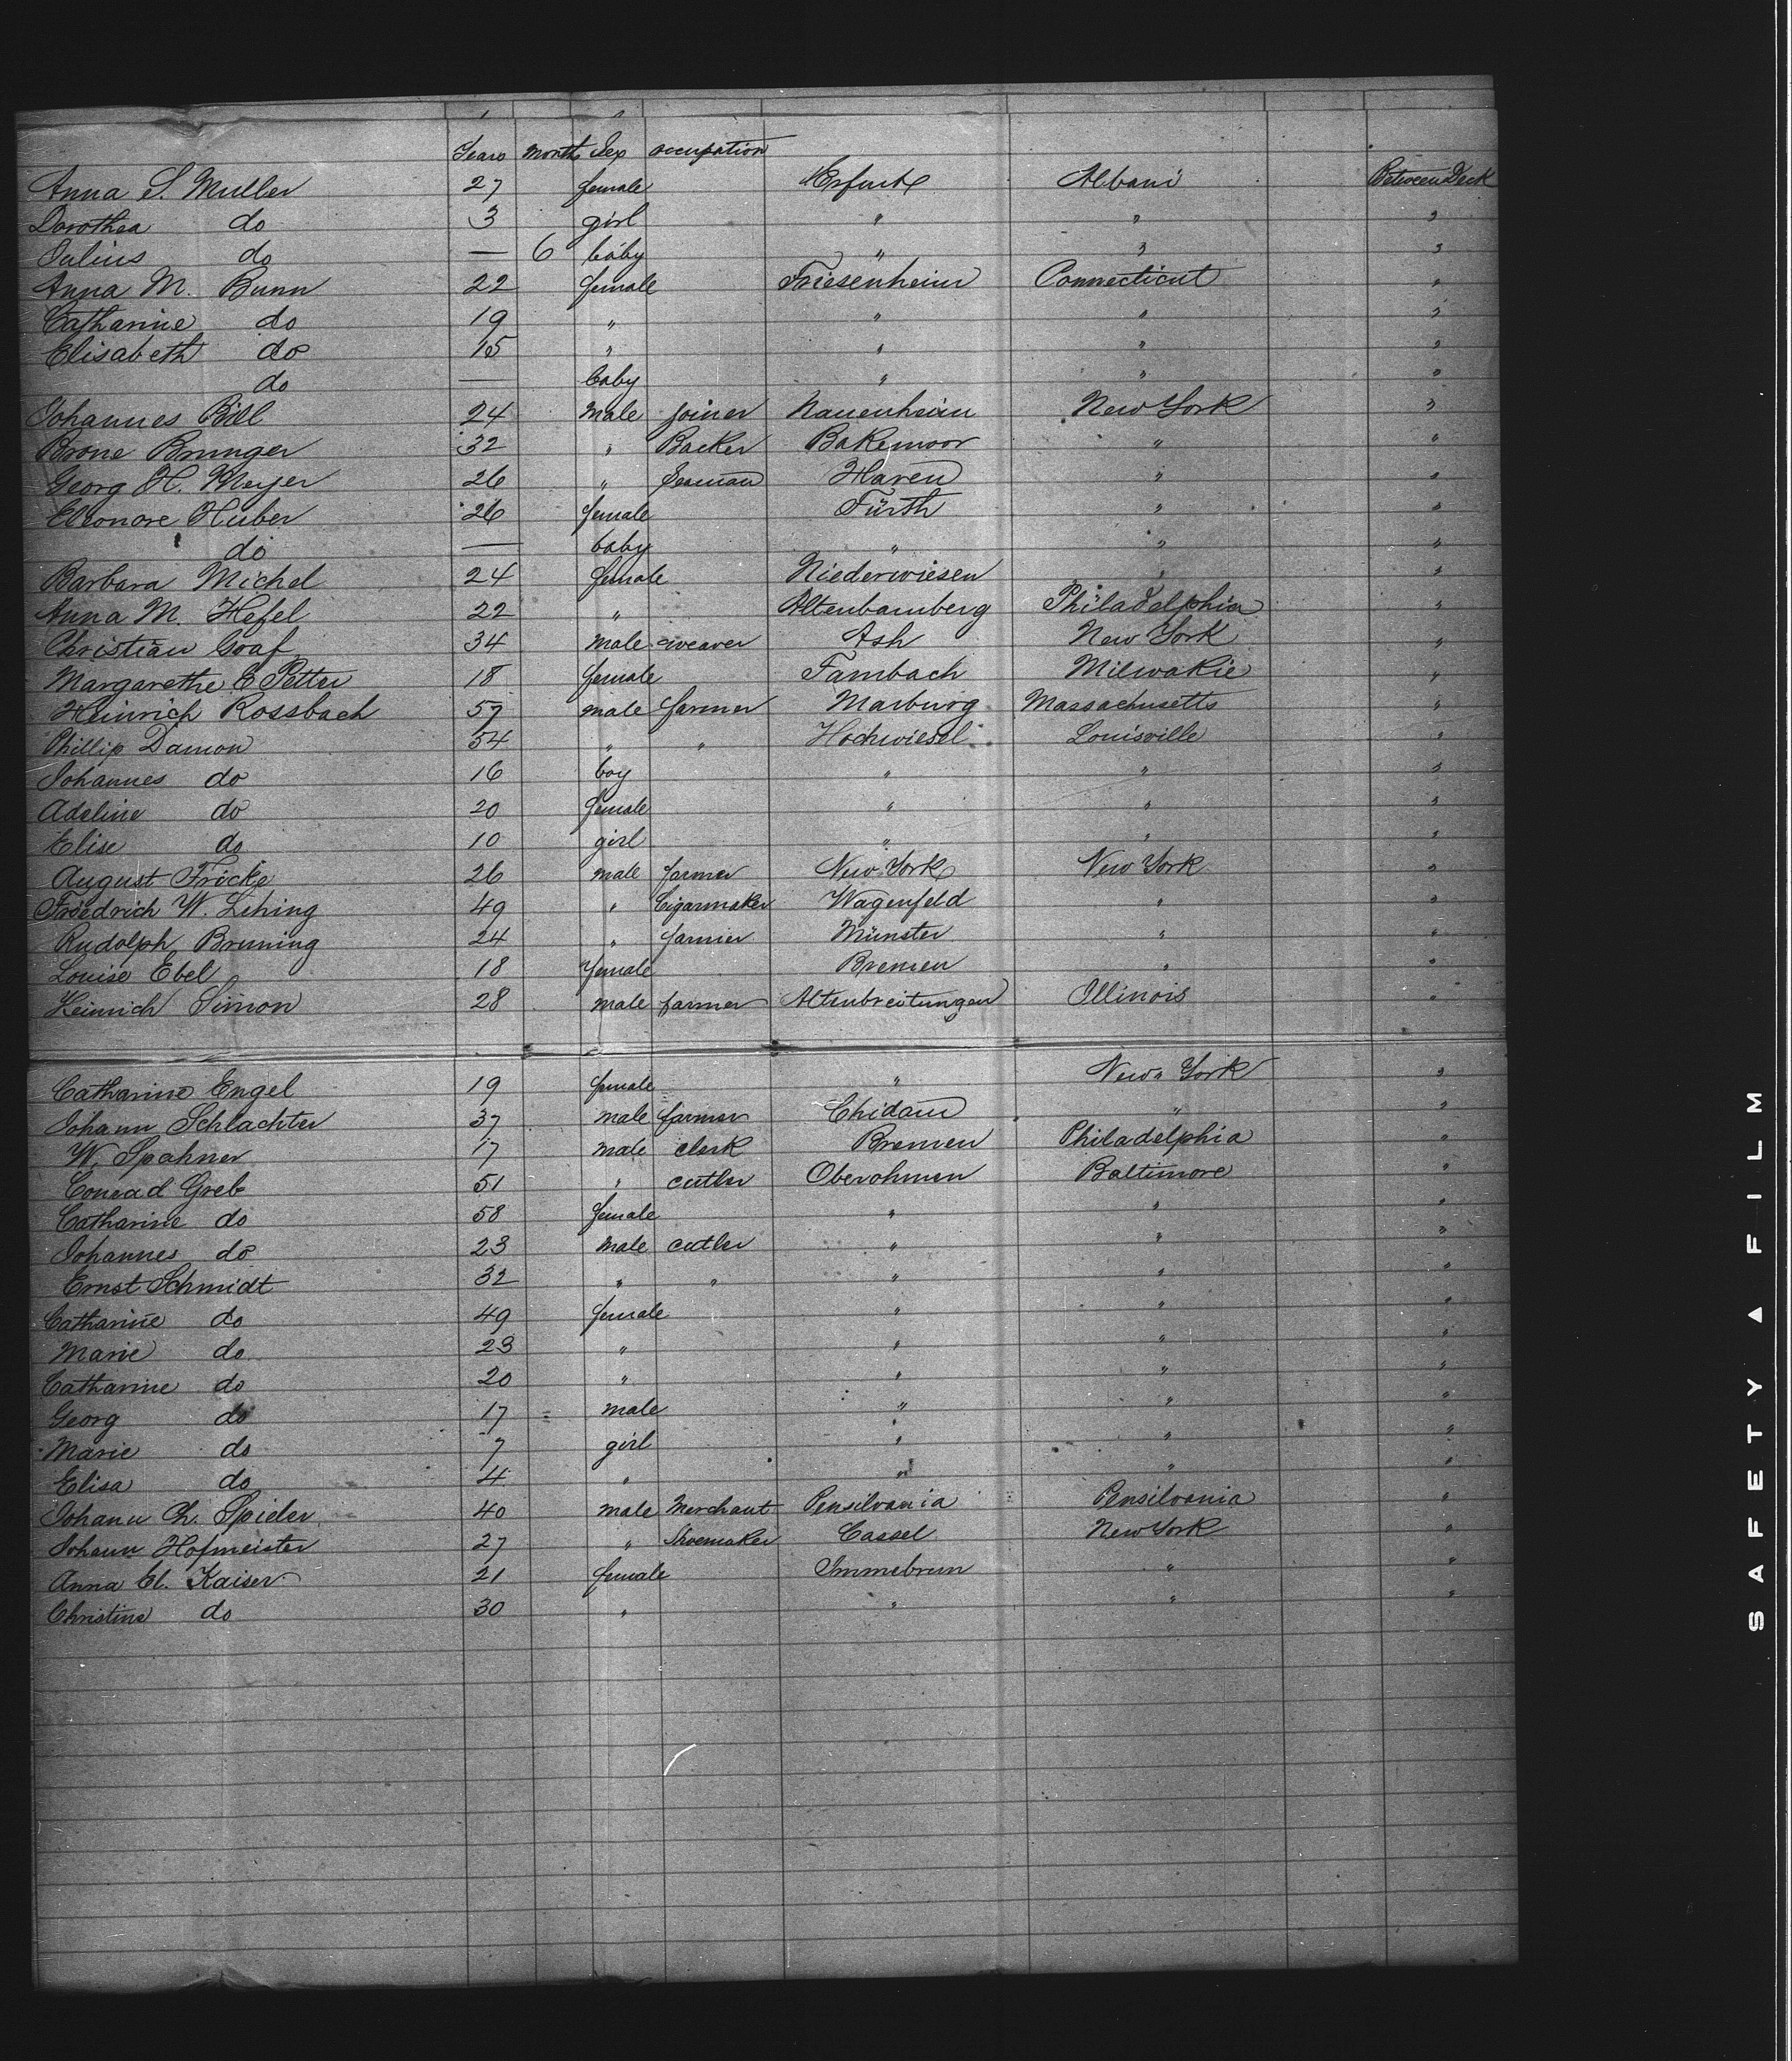 Years Month Sex occupation
Anna S. Muller 27 female Erfurt Albani Between Deck
Dorothea do 3 girl " " "
Julius do — 6 baby " " "
Anna M. Bunn 22 female Friesenheim Connecticut "
Catharine do 19 " " " "
Elisabeth do 15 " " " "
do — baby " " "
Johannes Bill 24 male joiner Nauenheim New York "
Brone Brunger 32 " Backer Bakemoor " "
Georg H. Meyer 26 " Seaman Haren " "
Eleonore Huber 26 female Fürth " "
do — baby " " "
Barbara Michel 24 female Niederwiesen " "
Anna M. Hefel 22 " Altenbamberg Philadelphia "
Christian Graf 34 male weaver Ash New York "
Margarethe E Petter 18 female Fambach Milwakie "
Heinrich Rossbach 57 male farmer Marburg Massachusetts "
Phillip Damon 54 " " Hochwiesel Louisville "
Johannes do 16 boy " " "
Adeline do 20 female " " "
Elise do 10 girl " " "
August Fricke 26 male farmer New York New York "
Friedrich W. Lehing 49 " Cigarmaker Wagenfeld " "
Rudolph Bruning 24 " farmer Münster " "
Louise Ebel 18 female Bremen " "
Heinrich Simon 28 male farmer Altenbreitungen Illinois "
Catharine Engel 19 female " New York "
Johann Schlachter 37 male farmer Chidam " "
W. Spahner 17 male clerk Bremen Philadelphia "
Conrad Greb 51 " cutler Oberohmen Baltimore "
Catharine do 58 female " " "
Johannes do 23 male cutler " " "
Ernst Schmidt 32 " " " " "
Catharine do 49 female " " "
Marie do 23 " " " "
Catharine do 20 " " " "
Georg do 17 male " " "
Marie do 7 girl " " "
Elisa do 4 " " " "
Johann Ch. Spieler 40 male Merchant Pensilvania Pensilvania "
Johann Hofmeister 27 " Shoemaker Cassel New York "
Anna El. Kaiser 21 female Immebrun " "
Christine do 30 " " " "
SAFETY ▲ FILM